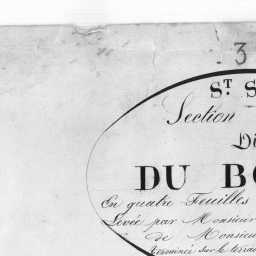 3
ST S
Section
DU
DU BO
En quatre Feuilles
Levée par Monsieur
de Monsieu
terminée sur le terrai